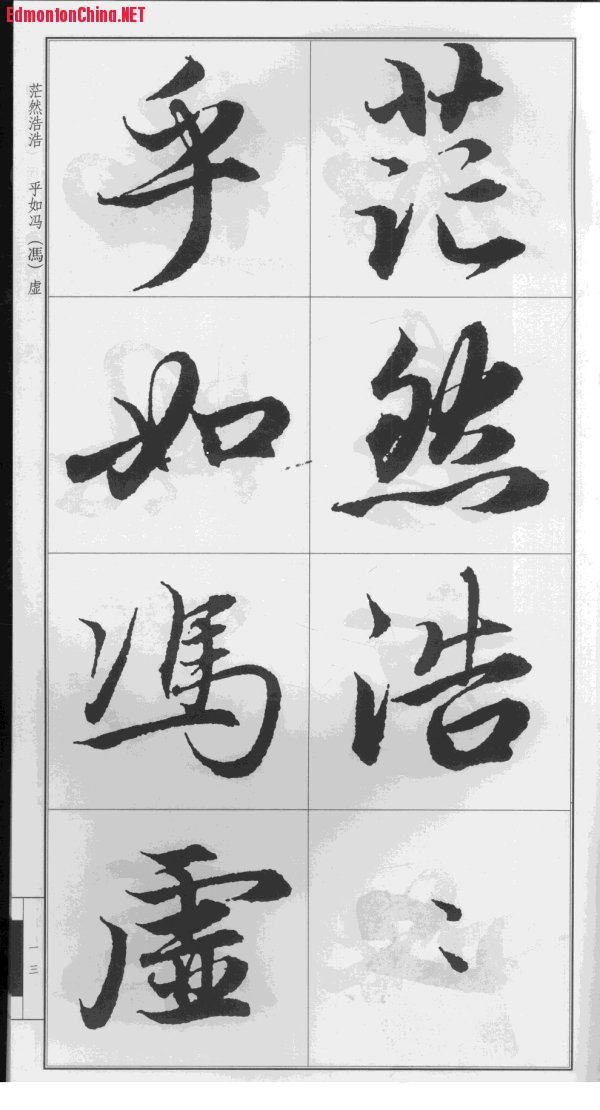 EdmontonChina.NET
茫然浩浩 乎如冯（馮）虚
茫然浩〻
乎如馮虛
一三